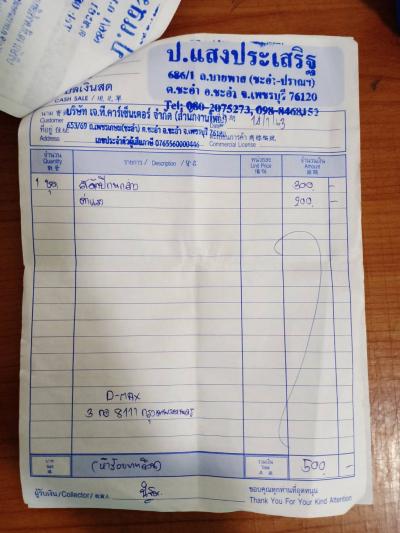 ป.แสงประเสริฐ
686/1 ถ.บายพาส (ชะอำ-ปราณฯ)
ต.ชะอำ อ.ชะอำ จ.เพชรบุรี 76120
Tel: 080-2075273, 098-8468152
บิลเงินสด
CASH SALE /
นาม บริษัท เจ.ที.คาร์เซ็นเตอร์ จำกัด (สำนักงานใหญ่)
Customer
ที่อยู่ 453/69 ถ.เพชรเกษม(ชะอำ) ต.ชะอำ อ.ชะอำ จ.เพชรบุรี 76120
Address เลขประจำตัวผู้เสียภาษี 0765560000446
Date
ทะเบียนการค้า
Commercial License
จำนวน รายการ / Description / หน่วยละ จำนวนเงิน
Quantity Unit Price Amount
1 ชุด 300 -
ค่าแรง 200 -
D-MAX
3 กอ 8111 กรุงเทพมหานคร
บาท (ห้าร้อยบาทถ้วน) รวมเงิน 500 -
Baht Total
ผู้รับเงิน/Collector/ ขอบคุณทุกท่านที่อุดหนุน
Thank You For Your Kind Attention